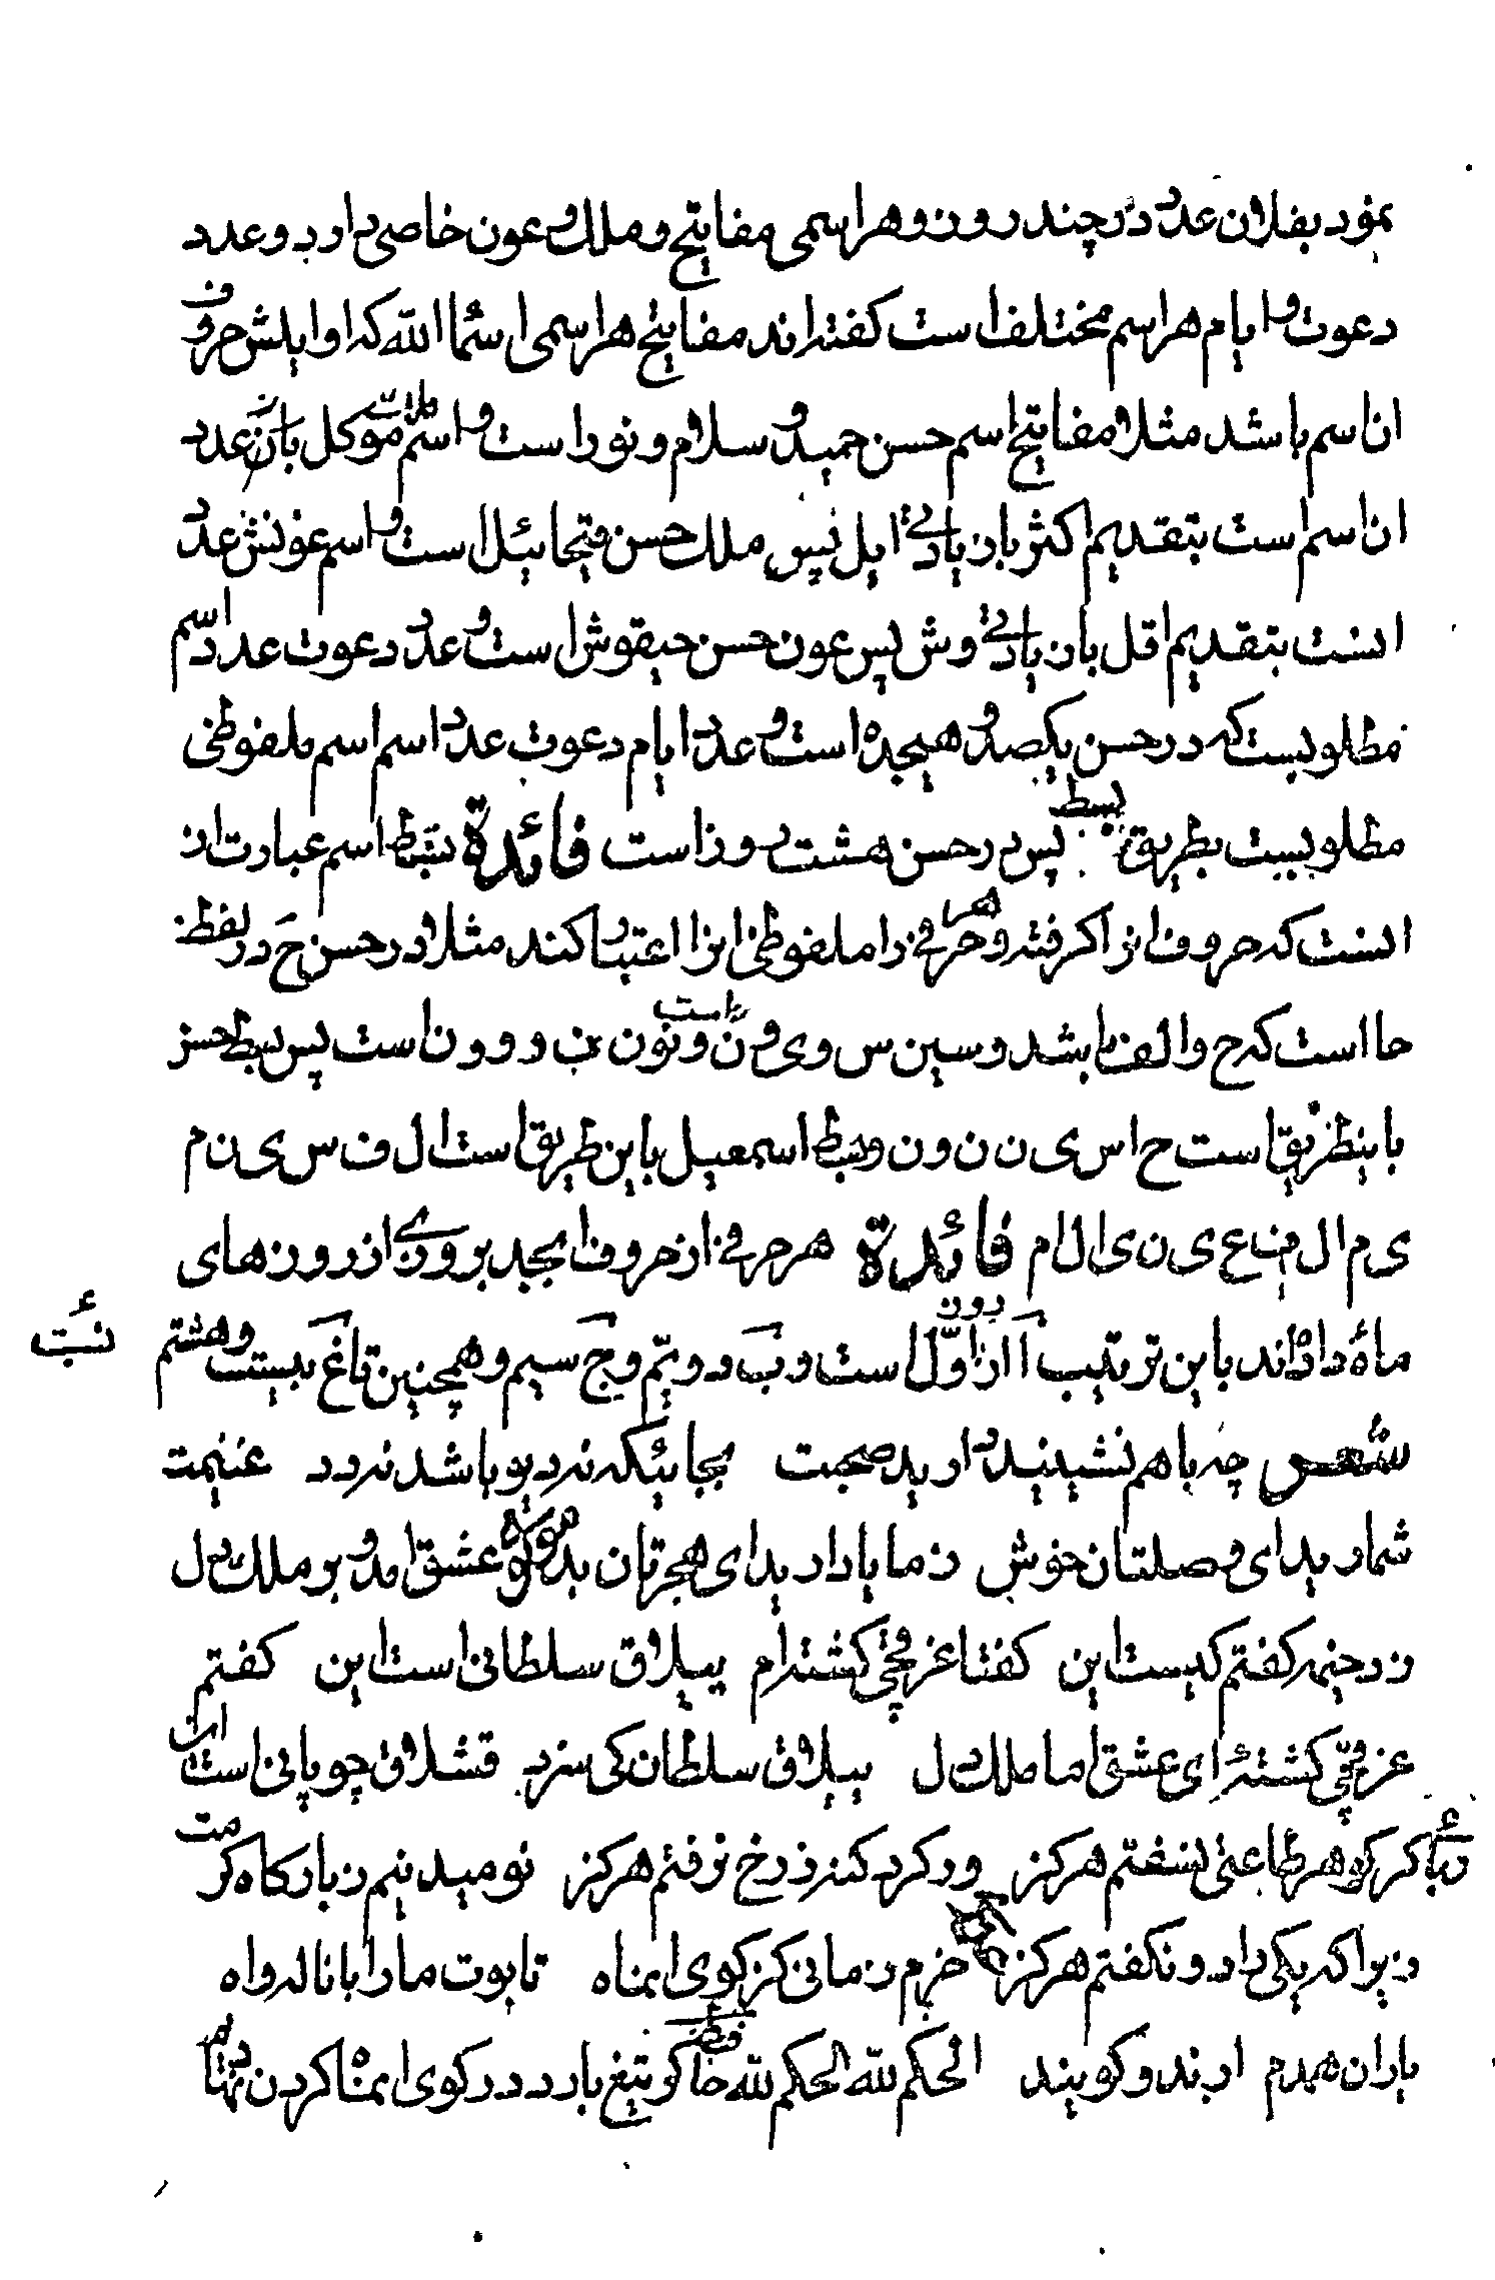 نمود بفلان عدد در چند روز و هر اسمی مفاتیح و ملک و عون خاصی دارد و عدد
دعوت و ایام هر اسم مختلف است کفته‌اند مفاتیح هر اسمی اسماء الله که اوایلش حروف
ان اسم باشد مثلا مفاتیح اسم حسن حمید و سلام و نور است و اسم ملک موکل بان عدد
ان اسم است بتقدیم اکثر بازیادتی ایل پس ملک حسن قیحائیل است و اسم عونش عدد
انست بتقدیم اقل بازیادتی وش پس عون حسن حیقوش است و عدد دعوت عدد اسم
مطلوبست که در حسن یکصد و هیجده است و عدد ایام دعوت عدد اسم اسم ملفوظی
مطلوبیست بطریق بسط پس در حسن هشت روز است فائدة بسط اسم عبارت از
انست که حروف انرا کرفته و هر حرفی را ملفوظی انرا اعتبار کند مثلا در حسن ح در لفظ
حا است که ح و الف باشد و سین س و ی و ن و نون ن و و و ن است پس بسط حسن
باینطریق است ح ا س ی ن ن و ن و بسط اسمعیل باین طریق است ا ل ف س ی ن م
ی م ا ل ف ع ی ن ی ا ل ا م فائدة هر حرفی از حروف ابجد بروزی از روزهای
ماه داده‌اند باین ترتیب ا از روز اول است و ب دویم و ج سیم و همچنین تا غ بیست و هشتم
شعر چه باهم نشینید دارید صحبت بجائیکه نردیو باشد نه دد غنیمت
شمارید ای وصلتان خوش ز ما یاد ارید ای هجرتان بد کوکوه عشق امد و بر ملک دل
زد خیمه کفتم کیست این کفتا غرقچی کشته‌ام ییلاق سلطانی است این کفتم
غرقچی کشتهٔ ای عشق اما ملک دل ییلاق سلطان کی سزد قشلاق چوپانی است این
کر کوهر طاعتی نسفتم هرکز ور کرد کنه ز رخ نرفتم هرکز نومید نیم ز بارکاه کرمت
زیرا که یکی را دو نکفتم هرکز خرم زمانی کز کوی انماه تابوت ما را با ناله و اه
یاران همدم ارند و کویند الحکم لله الحکم لله کو تیغ بارد در کوی انماه کردن نهادیم